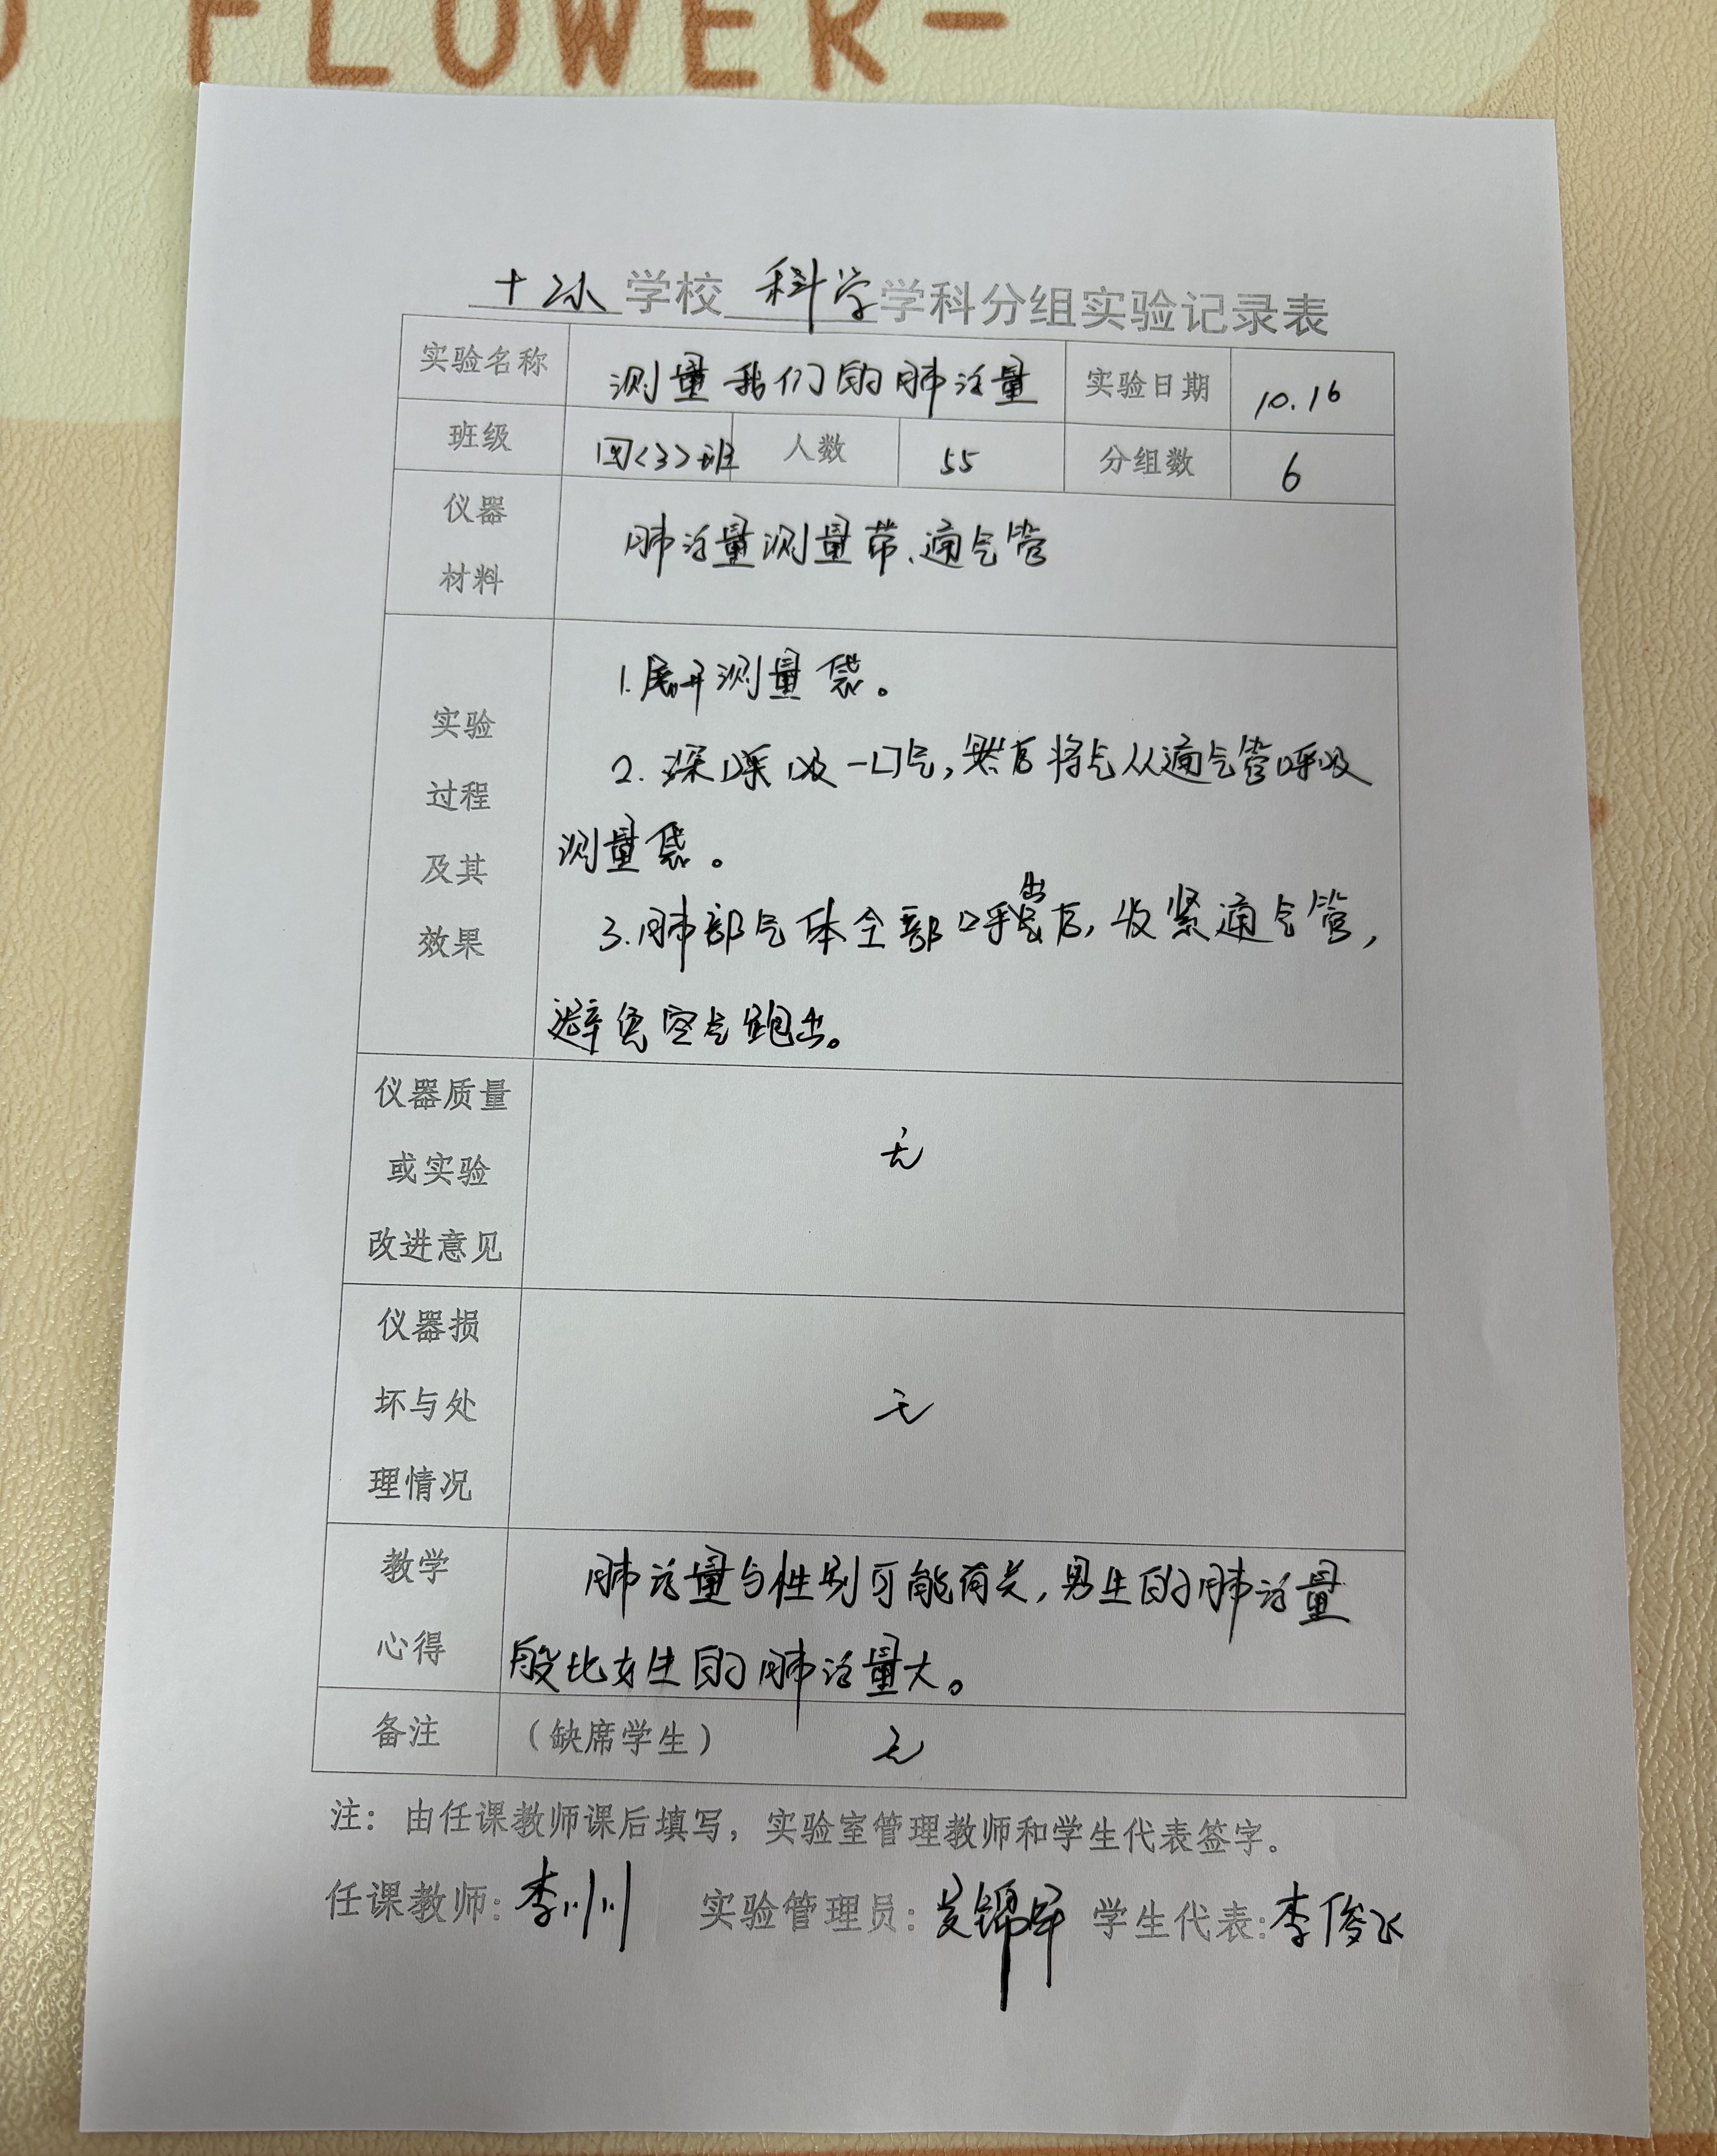 FLOWER-
十小 学校 科学 学科分组实验记录表
实验名称 测量我们的肺活量 实验日期 10.16
班级 四<3>班 人数 55 分组数 6
仪器
材料
肺活量测量带、通气管
实验
过程
及其
效果
1.展开测量袋。
2.深呼吸一口气,然后将气从通气管呼吸
测量袋。
3.肺部气体全部呼出后,收紧通气管,
避免空气跑出。
仪器质量
或实验
改进意见
无
仪器损
坏与处
理情况
无
教学
心得
肺活量与性别可能有关,男生的肺活量
般比女生的肺活量大。
备注 (缺席学生) 无
注:由任课教师课后填写,实验室管理教师和学生代表签字。
任课教师:李川川 实验管理员: 学生代表:李俊飞